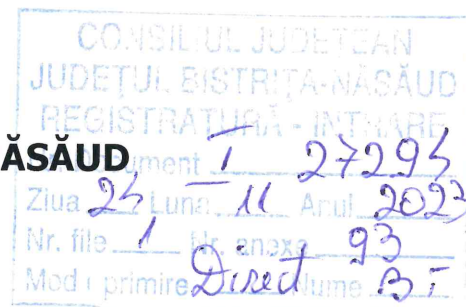 CONSILIUL JUDEȚEAN
JUDEȚUL BISTRIȚA-NĂSĂUD
REGISTRATURĂ - INTRARE
ĂSĂUD ument I 27294
Ziua 24 Luna 11 Anul 2023
Nr. file 1 Nr. anexe 93
Mod primire Direct lume BI